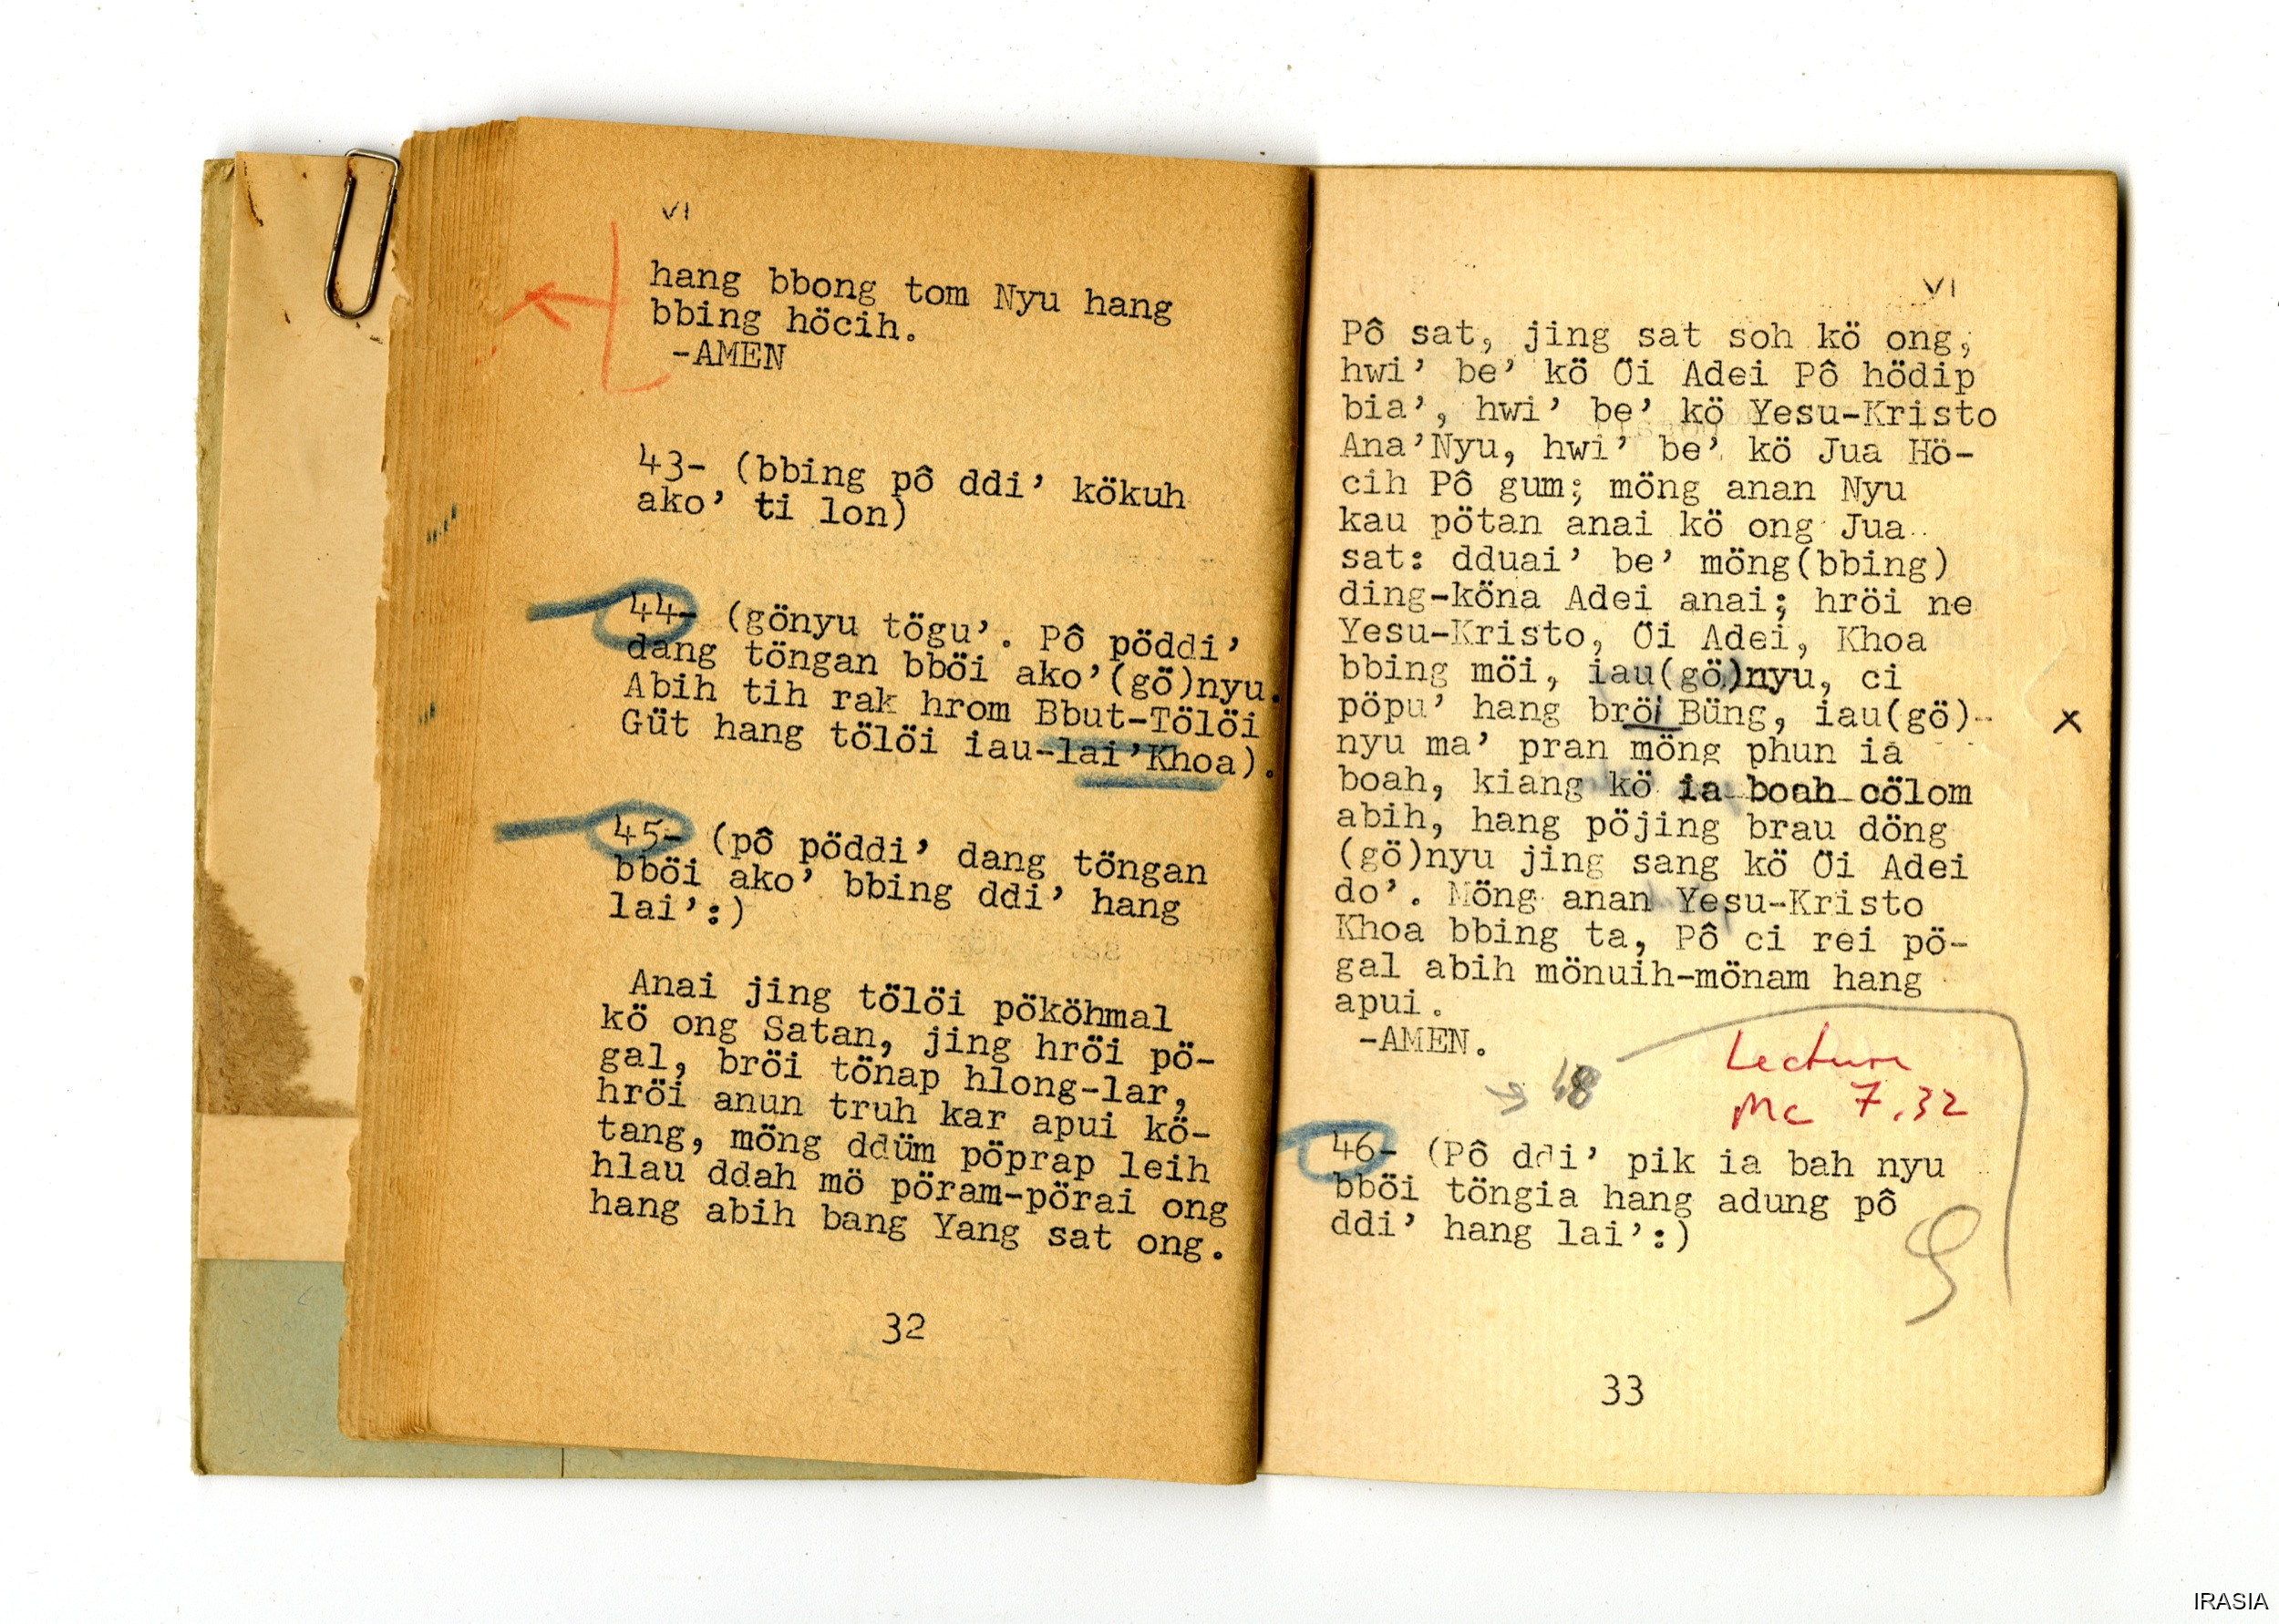 VI
hang bbong tom Nyu hang
bbing höcih.
-AMEN
43- (bbing pô ddi’ kökuh
ako’ ti lon)
44- (gönyu tögu’. Pô pöddi’
dang töngan bböi ako’(gö)nyu.
Abih tih rak hrom Bbut-Tölöi
Güt hang tölöi iau-lai’Khoa).
45- (pô pöddi’ dang töngan
bböi ako’ bbing ddi’ hang
lai’:)
Anai jing tölöi pököhmal
kö ong Satan, jing hröi pö-
gal, bröi tönap hlong-lar,
hröi anun truh kar apui kö-
tang, möng ddüm pöprap leih
hlau ddah mö pöram-pörai ong
hang abih bang Yang sat ong.
32
VI
Pô sat, jing sat soh kö ong,
hwi’ be’ kö Öi Adei Pô hödip
bia’, hwi’ be’ kö Yesu-Kristo
Ana’Nyu, hwi’ be’ kö Jua Hö-
cih Pô gum; möng anan Nyu
kau pötan anai kö ong Jua
sat: dduai’ be’ möng(bbing)
ding-köna Adei anai; hröi ne
Yesu-Kristo, Öi Adei, Khoa
bbing möi, iau(gö)nyu, ci
pöpu’ hang bröi Büng, iau(gö)-
nyu ma’ pran möng phun ia
x
boah, kiang kö ia boah cölom
abih, hang pöjing brau döng
(gö)nyu jing sang kö Öi Adei
do’. Möng anan Yesu-Kristo
Khoa bbing ta, Pô ci rei pö-
gal abih mönuih-mönam hang
apui.
-AMEN.
→ 48
Lecture
Mc 7.32
46- (Pô ddi’ pik ia bah nyu
bböi töngia hang adung pô
ddi’ hang lai’:)
33
IRASIA